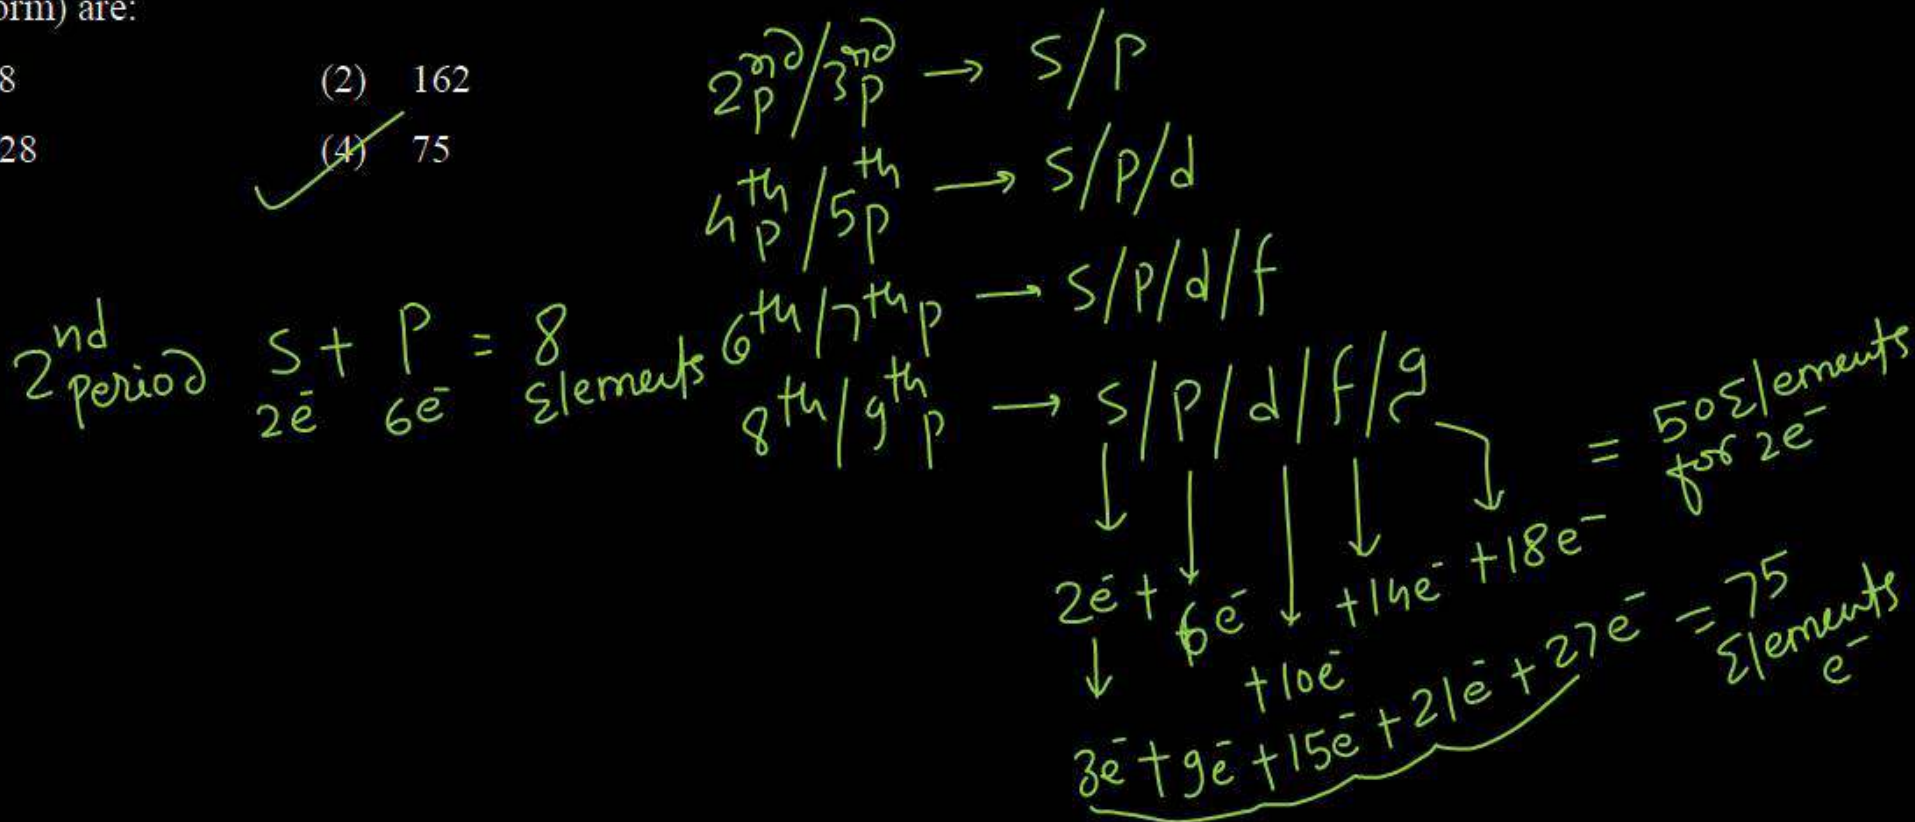 orm) are:
8 (2) 162
28 (4) 75
2nd p/3nd p → S/P
4th p/5th p → S/P/d
6th/7th p → S/P/d/f
8th/9th p → S/P/d/f/g
2nd period S + P = 8 Elements
2e⁻ 6e⁻
2e⁻ + 6e⁻ +10e⁻ +14e⁻ +18e⁻ = 50 Elements for 2e⁻
3e⁻ + 9e⁻ + 15e⁻ + 21e⁻ + 27e⁻ = 75 Elements e⁻